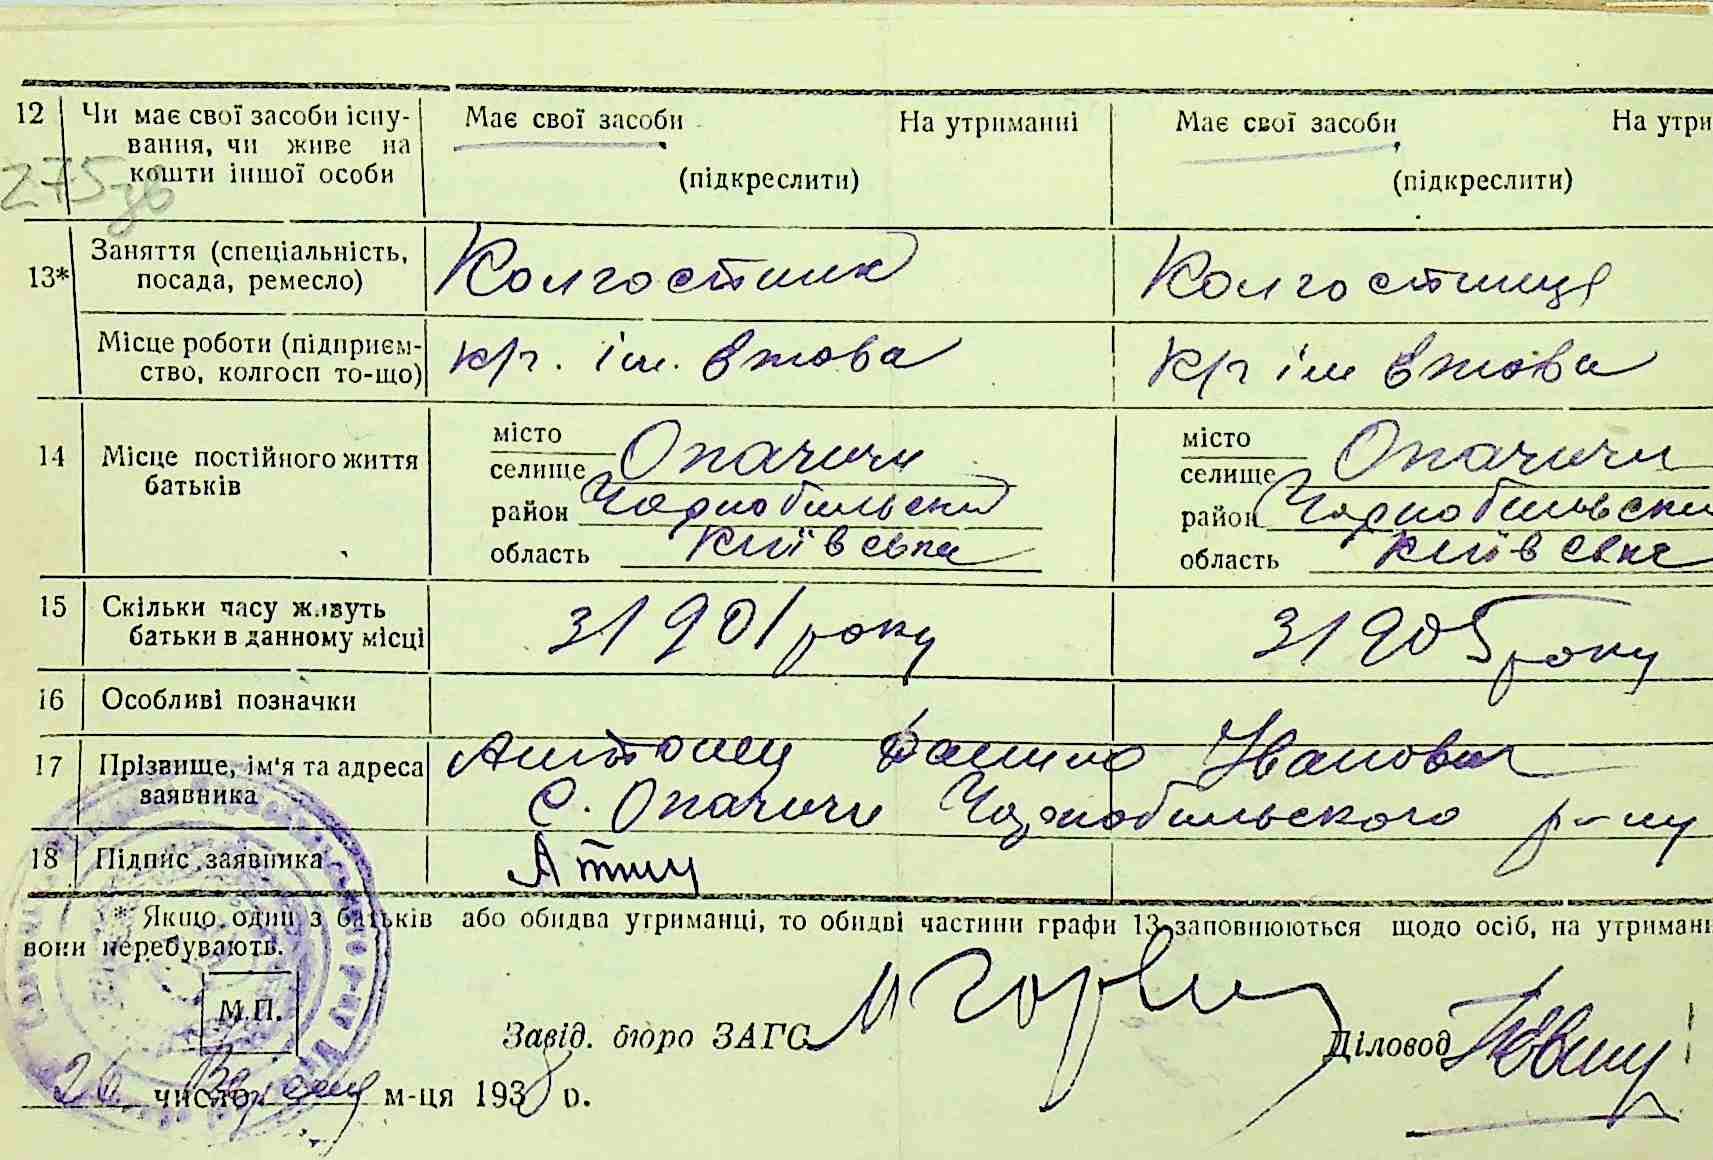 12 Чи має свої засоби існу- Має свої засоби На утриманні Має свої засоби На утри
вання, чи живе на
кошти іншої особи (підкреслити) (підкреслити)
275зв
13* Заняття (спеціальність, Колгостник Колгостниця
посада, ремесло)
Місце роботи (підприєм- к/г. ім. Єжова к/г ім Єжова
ство, колгосп то-що)
14 Місце постійного життя місто місто
батьків селище Опачичи селище Опачичи
район Чорнобильски район Чорнобильски
область Київська область Київська
15 Скільки часу живуть З 1901 року З 1905 року
батьки в данному місці
16 Особливі позначки
17 Прізвище, ім'я та адреса Данило Іванович
заявника С. Опачичи Чорнобильського р-ну
18 Підпис заявника
* Якщо один з батьків або обидва утриманці, то обидві частини графи 13 заповнюються щодо осіб, на утриман
вони перебувають.
М.П.
Завід. бюро ЗАГС Діловод
26 число Вересня м-ця 1938 р.